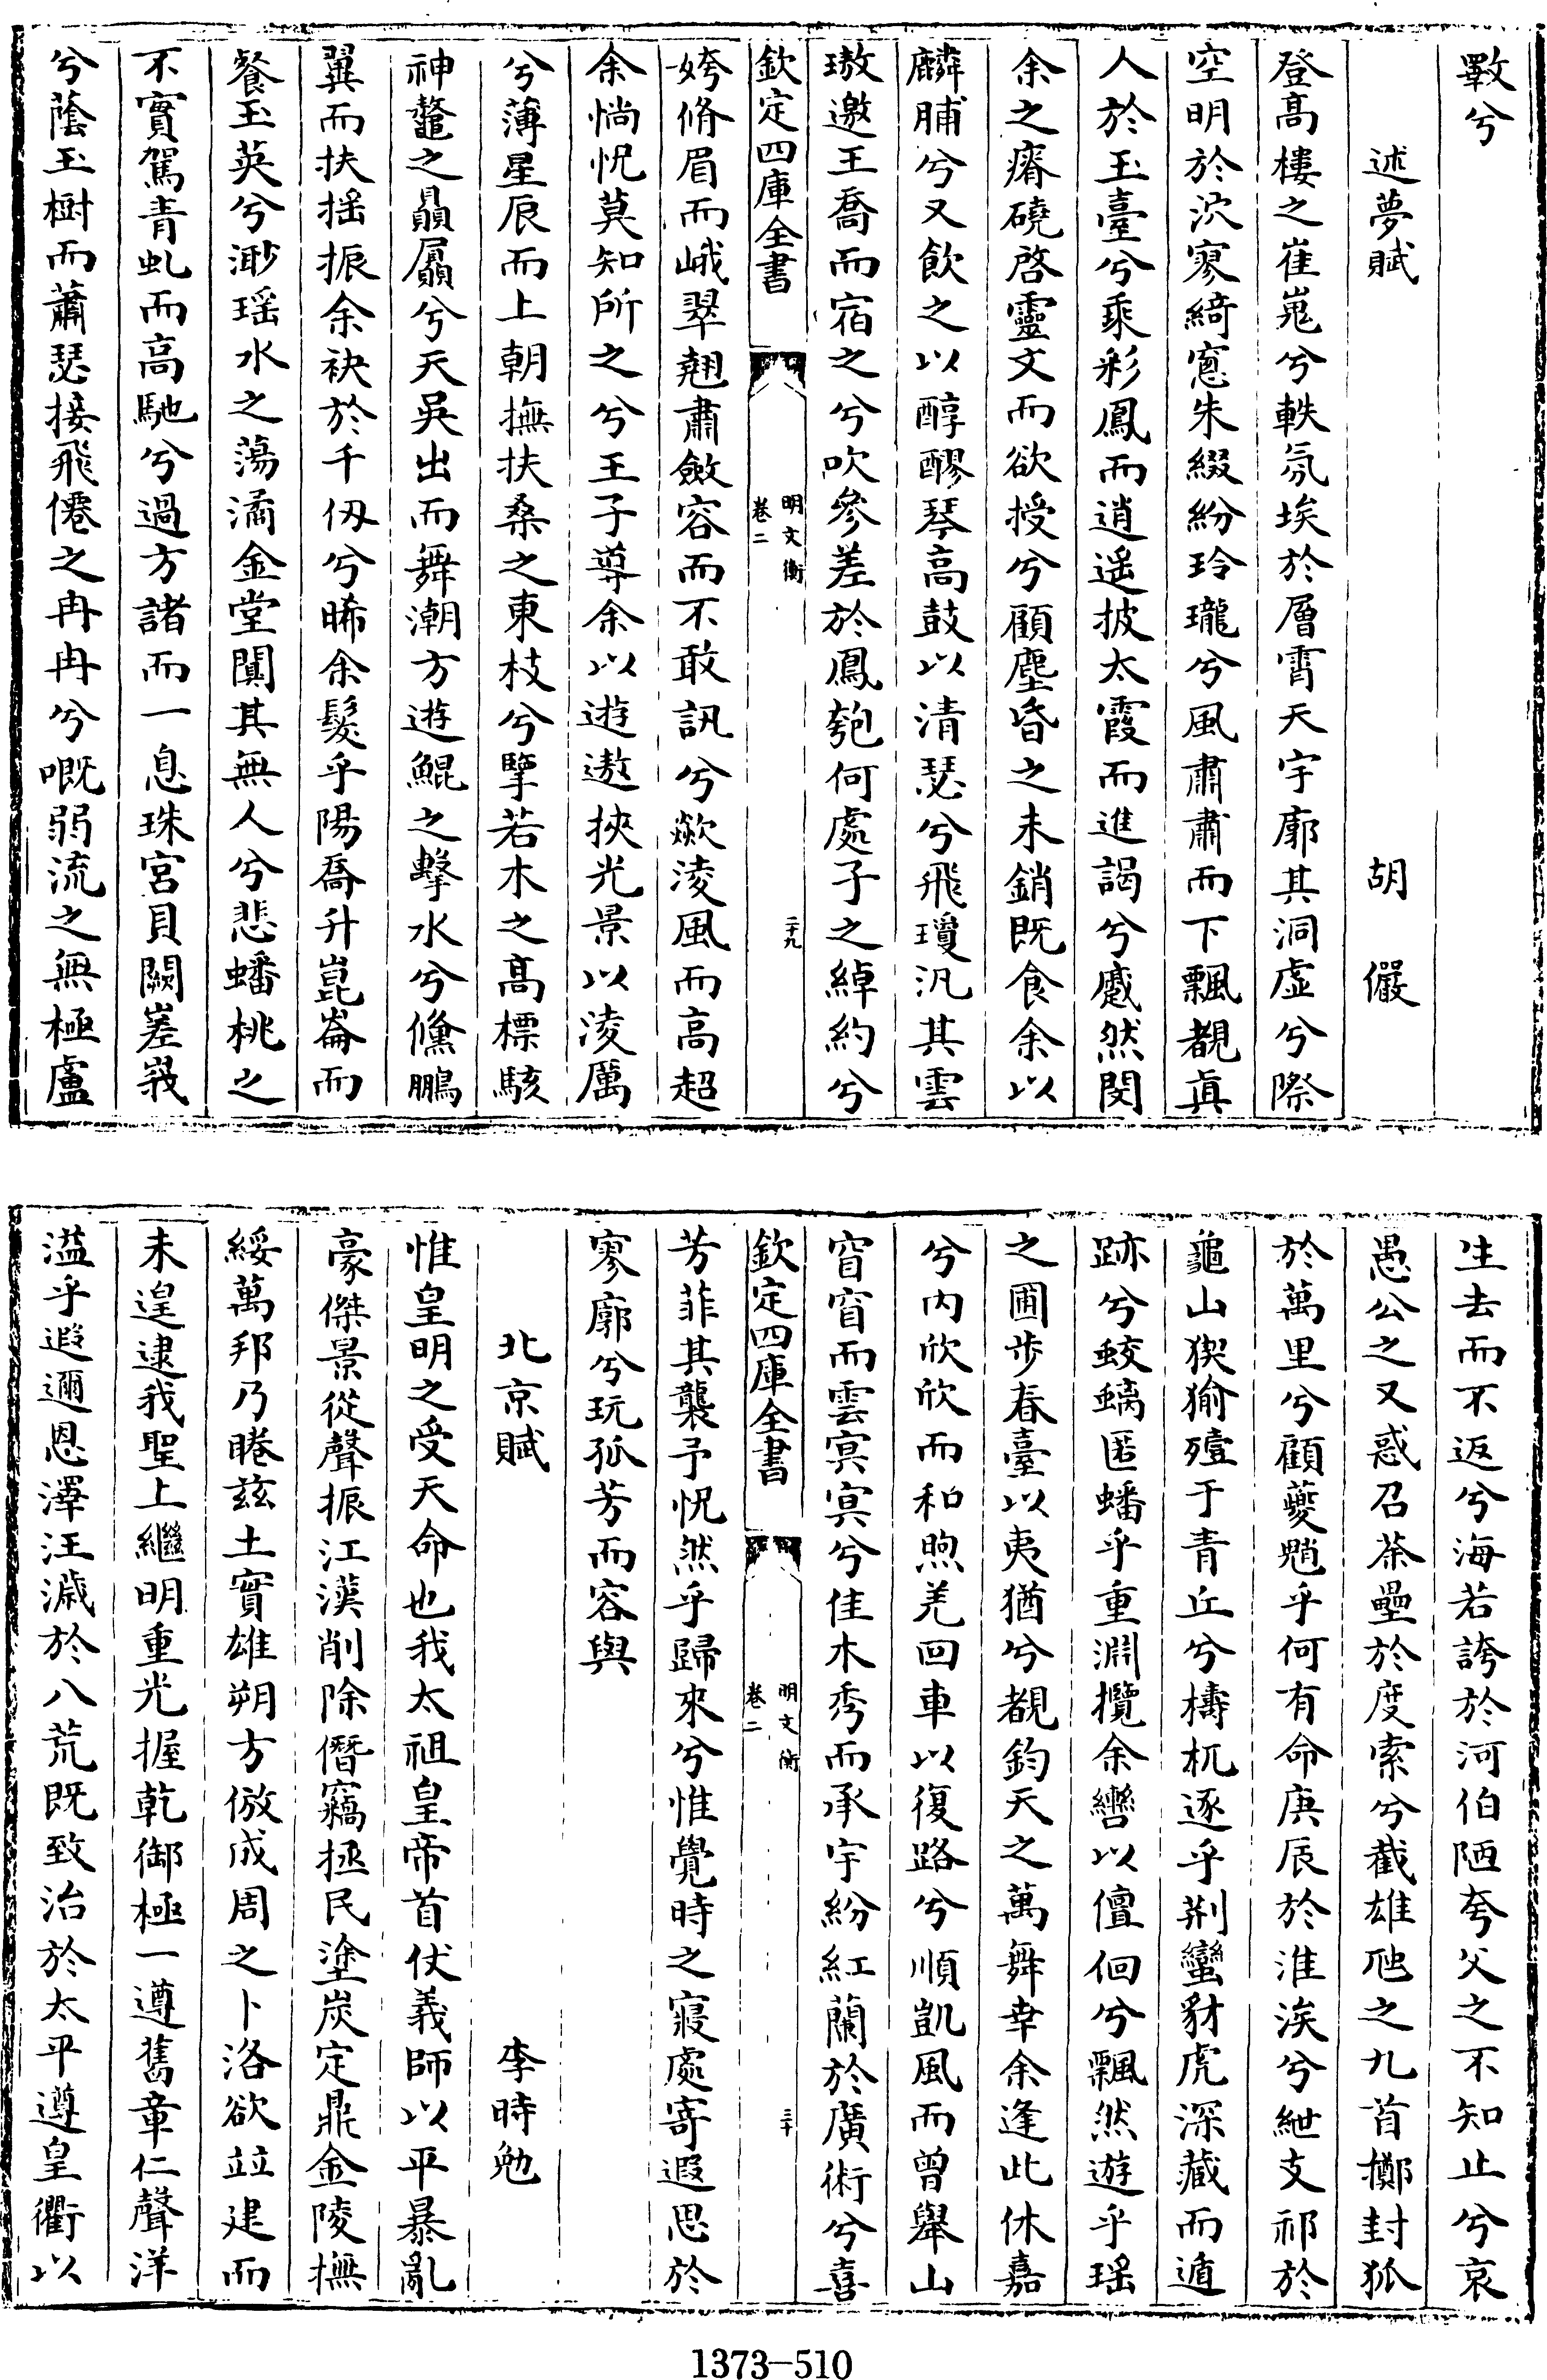 斁兮
述夢賦　胡儼
登高樓之崔嵬兮軼氛埃於層霄天宇廓其洞虛兮際
空明於泬寥綺窻朱綴紛玲瓏兮風肅肅而下飄覩真
人於玉臺兮乘彩鳳而逍遥披太霞而進謁兮蹙然閔
余之瘠磽啓靈文而欲授兮顧塵昏之未銷既食余以
麟脯兮又飲之以醇醪琴高鼓以清瑟兮飛瓊汎其雲
璈邀王喬而宿之兮吹參差於鳳匏何處子之綽約兮
欽定四庫全書
明文衡
卷二
二十九
姱脩眉而峨翠翹肅斂容而不敢訊兮歘淩風而高超
余惝怳莫知所之兮王子導余以遊遨挾光景以淩厲
兮薄星辰而上朝撫扶桑之東枝兮擥若木之高標駭
神鼇之贔屭兮天吳出而舞潮方遊鯤之擊水兮儵鵬
翼而扶揺振余袂於千仭兮晞余髮乎陽喬升崑崙而
餐玉英兮渺瑶水之蕩潏金堂闃其無人兮悲蟠桃之
不實駕青虬而高馳兮過方諸而一息珠宮貝闕嵳峩
兮蔭玉樹而蕭瑟接飛僊之冉冉兮嘅弱流之無極盧
生去而不返兮海若誇於河伯陋夸父之不知止兮哀
愚公之又惑召荼壘於度索兮截雄虺之九首擲封狐
於萬里兮顧夔魈乎何有命庚辰於淮涘兮紲支祁於
龜山猰㺄殪于青丘兮檮杌逐乎荆蠻豺虎深藏而遁
跡兮蛟螭匿蟠乎重淵攬余轡以儃佪兮飄然遊乎瑶
之圃步春臺以夷猶兮覩鈞天之萬舞幸余逢此休嘉
兮内欣欣而和煦羌回車以復路兮順凱風而曾舉山
窅窅而雲冥冥兮佳木秀而承宇紛紅蘭於廣術兮喜
欽定四庫全書
明文衡
卷二
三十
芳菲其襲予怳然乎歸來兮惟覺時之寢處寄遐思於
寥廓兮玩孤芳而容與
北京賦　李時勉
惟皇明之受天命也我太祖皇帝首仗義師以平暴亂
豪傑景從聲振江漢削除僭竊拯民塗炭定鼎金陵撫
綏萬邦乃睠兹土實雄朔方倣成周之卜洛欲竝建而
未遑逮我聖上繼明重光握乾御極一遵舊章仁聲洋
溢乎遐邇恩澤汪濊於八荒既致治於太平遵皇衢以
1373-510